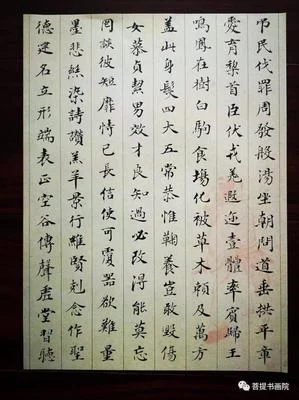 吊民伐罪周發殷湯坐朝問道垂拱平章
愛育黎首臣伏戎羌遐迩壹體率賓歸王
鳴鳳在樹白駒食場化被草木賴及萬方
蓋此身髮四大五常恭惟鞠養豈敢毀傷
女慕貞潔男效才良知過必改得能莫忘
罔談彼短靡恃己長信使可覆器欲難量
墨悲絲染詩讚羔羊景行維賢剋念作聖
德建名立形端表正空谷傳聲虛堂習聽
菩提书画院